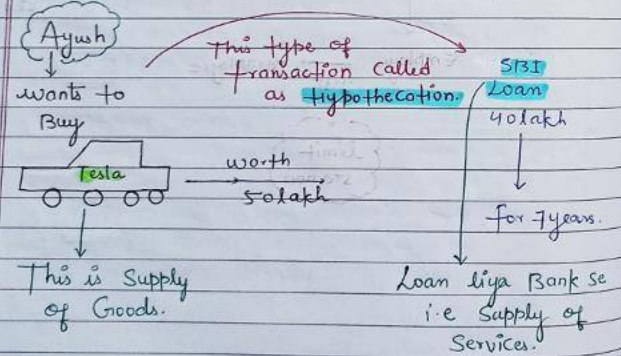 Ayush
wants to
Buy
Tesla
worth
50 lakh
This is Supply
of Goods.
This type of
transaction Called
as Hypothecation.
SBI
Loan
40 lakh
for 7 years.
Loan liya Bank se
i.e Supply of
Services.